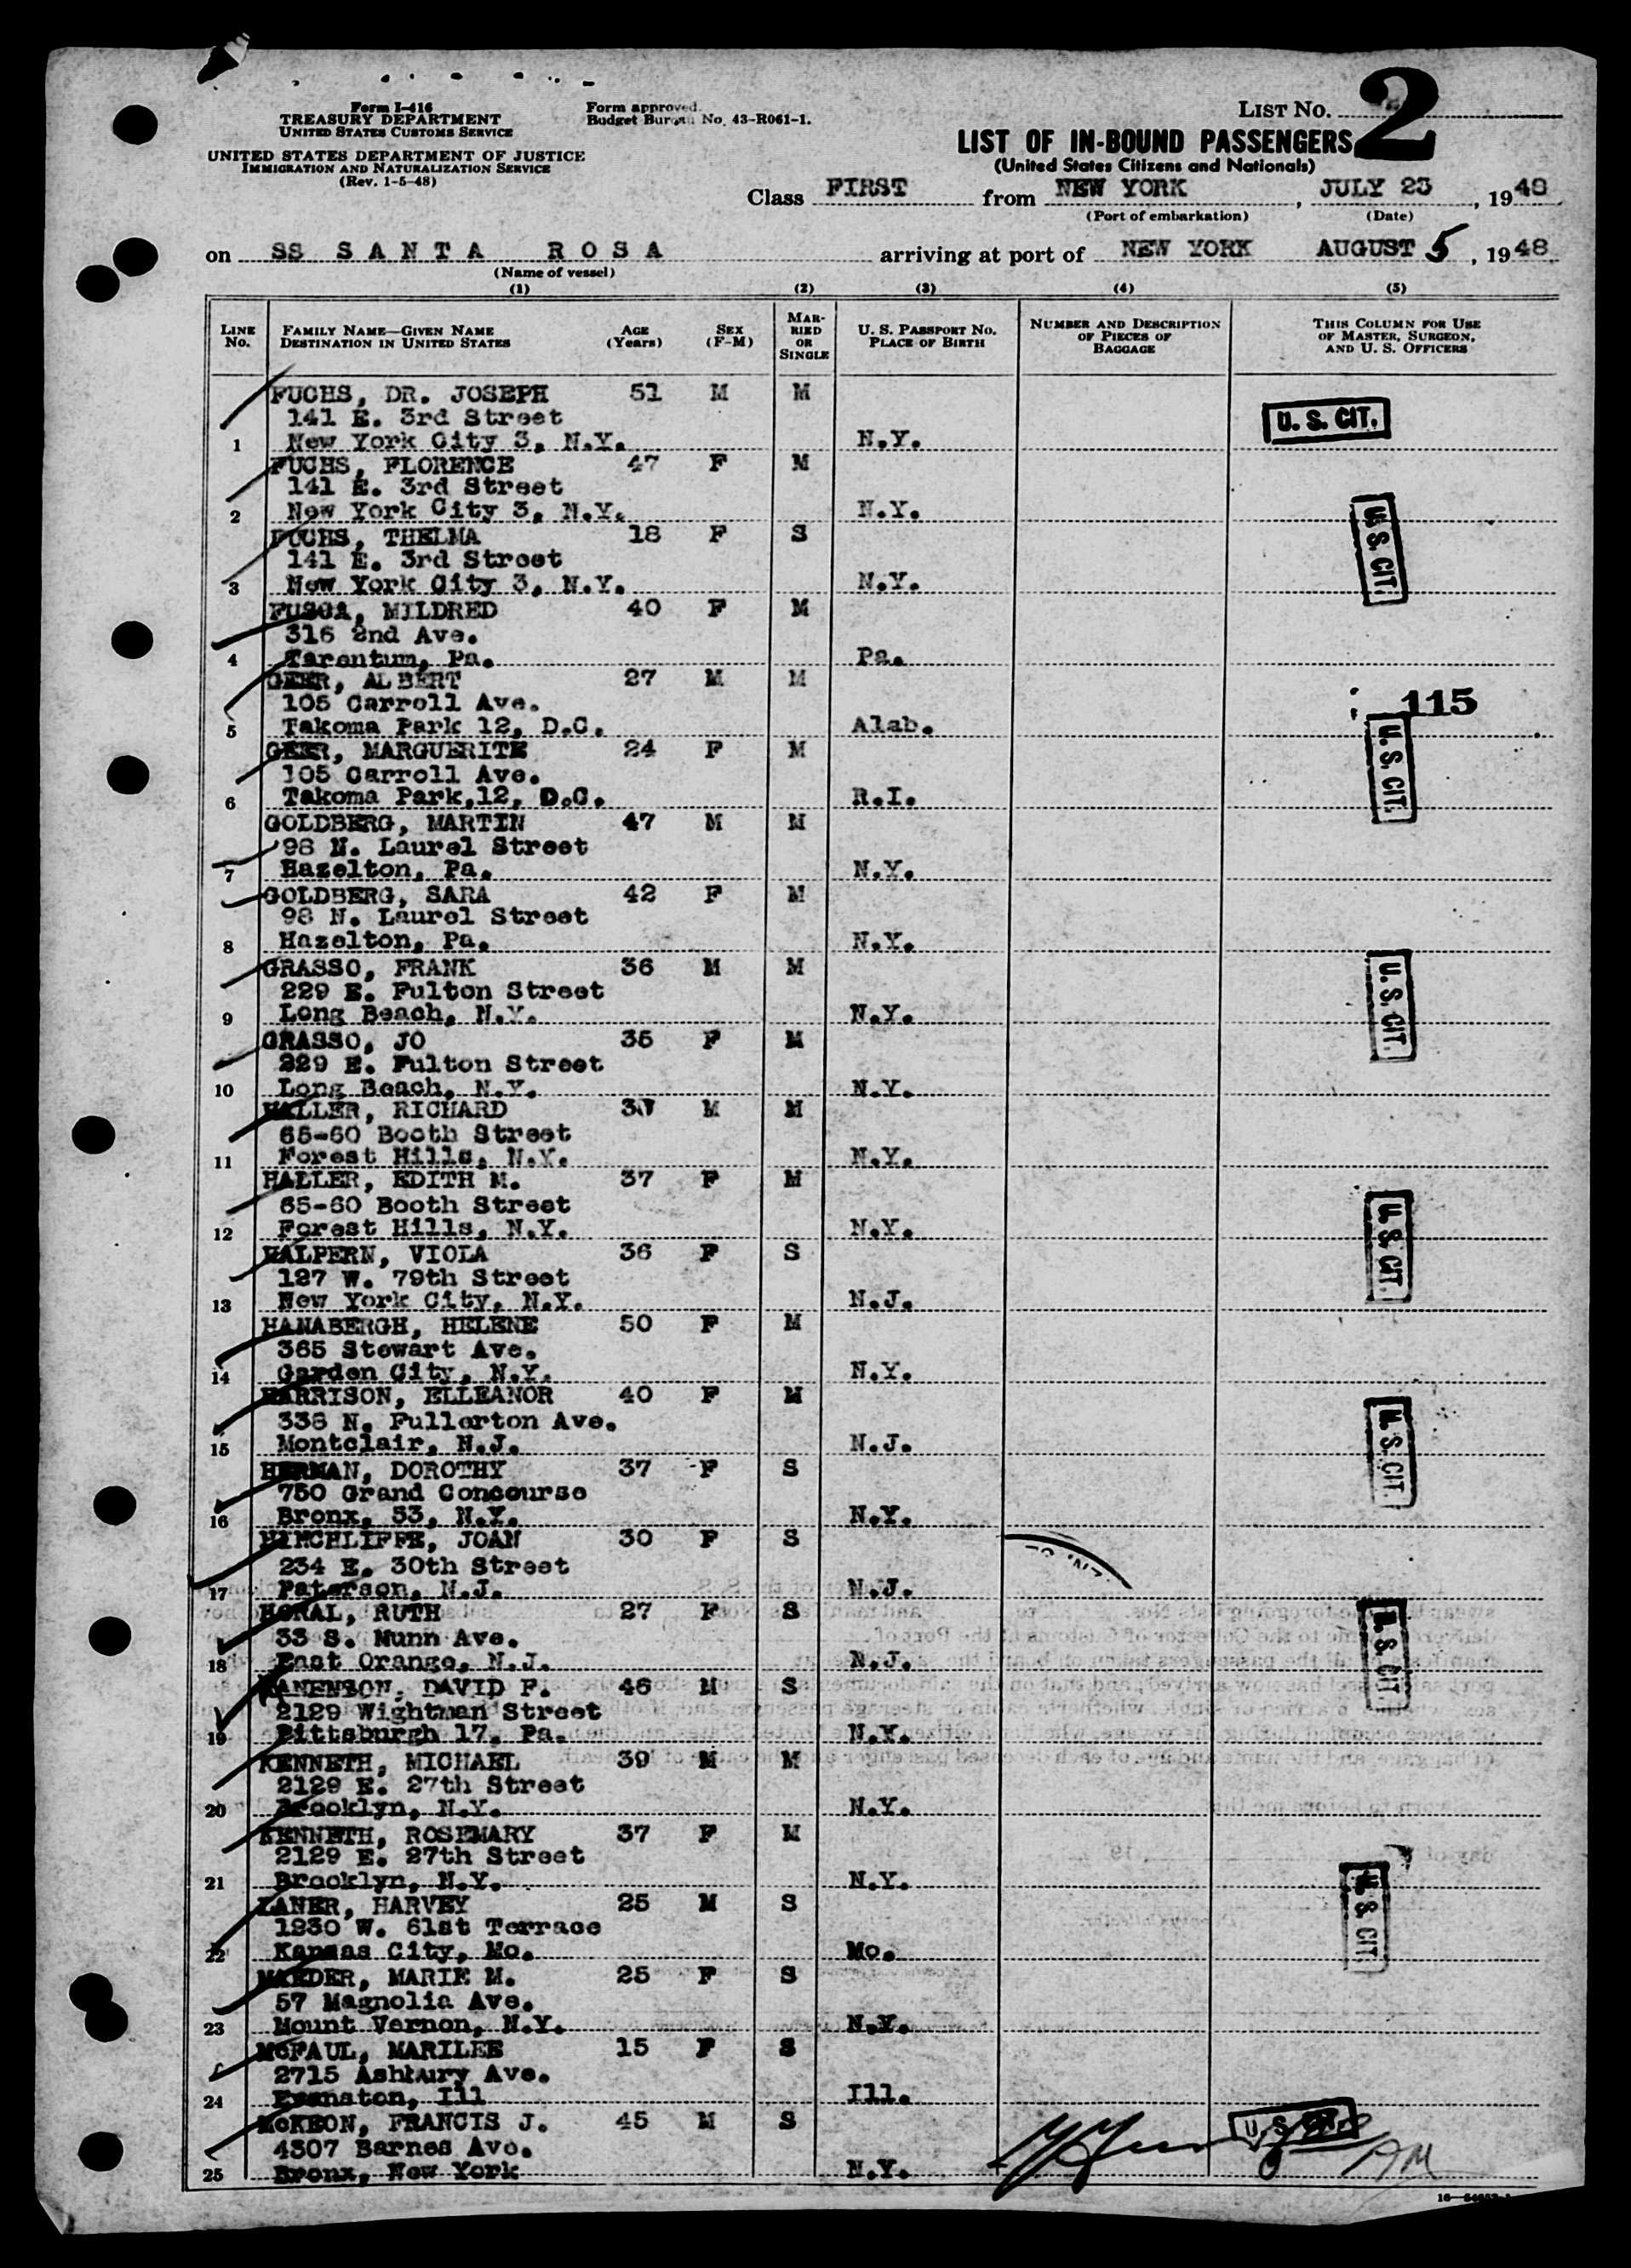 Form I-416
TREASURY DEPARTMENT
UNITED STATES CUSTOMS SERVICE
UNITED STATES DEPARTMENT OF JUSTICE
IMMIGRATION AND NATURALIZATION SERVICE
(Rev. 1-5-48)
Form approved.
Budget Bureau No. 43-R061-1.
LIST No. 2
LIST OF IN-BOUND PASSENGERS
(United States Citizens and Nationals)
Class FIRST from NEW YORK, JULY 23, 1948
(Port of embarkation) (Date)
on SS SANTA ROSA arriving at port of NEW YORK AUGUST 5, 1948
(Name of vessel)
(1) (2) (3) (4) (5)
LINE No. FAMILY NAME—GIVEN NAME DESTINATION IN UNITED STATES AGE (Years) SEX (F-M) MARRIED OR SINGLE U. S. PASSPORT No. PLACE OF BIRTH NUMBER AND DESCRIPTION OF PIECES OF BAGGAGE THIS COLUMN FOR USE OF MASTER, SURGEON, AND U. S. OFFICERS
FUCHS, DR. JOSEPH 51 M M
141 E. 3rd Street U. S. CIT.
1 New York City 3, N.Y. N.Y.
FUCHS, FLORENCE 47 F M
141 E. 3rd Street
2 New York City 3, N.Y. N.Y.
FUCHS, THELMA 18 F S U. S. CIT.
141 E. 3rd Street
3 New York City 3, N.Y. N.Y.
FUSCA, MILDRED 40 F M
316 2nd Ave.
4 Tarentum, Pa. Pa.
GEER, ALBERT 27 M M
105 Carroll Ave. 115
5 Takoma Park 12, D.C. Alab.
GEER, MARGUERITE 24 F M U. S. CIT.
105 Carroll Ave.
6 Takoma Park,12, D.C. R.I.
GOLDBERG, MARTIN 47 M M
98 N. Laurel Street
7 Hazelton, Pa. N.Y.
GOLDBERG, SARA 42 F M
98 N. Laurel Street
8 Hazelton, Pa. N.Y.
GRASSO, FRANK 36 M M U. S. CIT.
229 E. Fulton Street
9 Long Beach, N.Y. N.Y.
GRASSO, JO 35 F M
229 E. Fulton Street
10 Long Beach, N.Y. N.Y.
HALLER, RICHARD M M
65-60 Booth Street
11 Forest Hills, N.Y. N.Y.
HALLER, EDITH M. 37 F M
65-60 Booth Street
12 Forest Hills, N.Y. N.Y.
HALPERN, VIOLA 36 F S U. S. CIT.
127 W. 79th Street
13 New York City, N.Y. N.J.
HANABERGH, HELENE 50 F M
365 Stewart Ave.
14 Garden City, N.Y. N.Y.
HARRISON, ELLEANOR 40 F M
338 N. Fullerton Ave. U. S. CIT.
15 Montclair, N.J. N.J.
HERMAN, DOROTHY 37 F S
750 Grand Concourse
16 Bronx, 53, N.Y. N.Y.
HINCHLIFFE, JOAN 30 F S
234 E. 30th Street
17 Paterson, N.J. N.J.
HORAL, RUTH 27 F S
33 S. Nunn Ave. U. S. CIT.
18 East Orange, N.J. N.J.
KANENSON, DAVID F. 46 M S
2129 Wightman Street
19 Pittsburgh 17, Pa. N.Y.
KENNETH, MICHAEL 39 M M
2129 E. 27th Street
20 Brooklyn, N.Y. N.Y.
KENNETH, ROSEMARY 37 F M
2129 E. 27th Street
21 Brooklyn, N.Y. N.Y.
LANER, HARVEY 25 M S U. S. CIT.
1230 W. 61st Terrace
22 Kansas City, Mo. Mo.
MAEDER, MARIE M. 25 F S
57 Magnolia Ave.
23 Mount Vernon, N.Y. N.Y.
McFAUL, MARILEE 15 F S
2715 Ashbury Ave.
24 Evanston, Ill Ill.
McKEON, FRANCIS J. 45 M S U. S.
4307 Barnes Ave.
25 Bronx, New York N.Y.